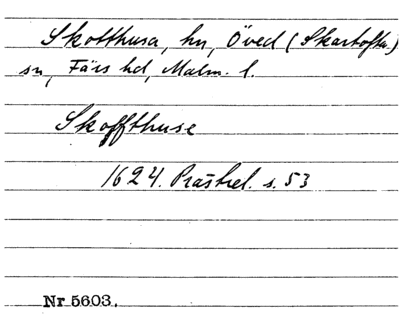 Skotthusa, hn, Öved (Skartofta)
sn, Färs hd, Malm. l.
Skoffthuse
1624. Prästrel. s. 53
Nr 5603.